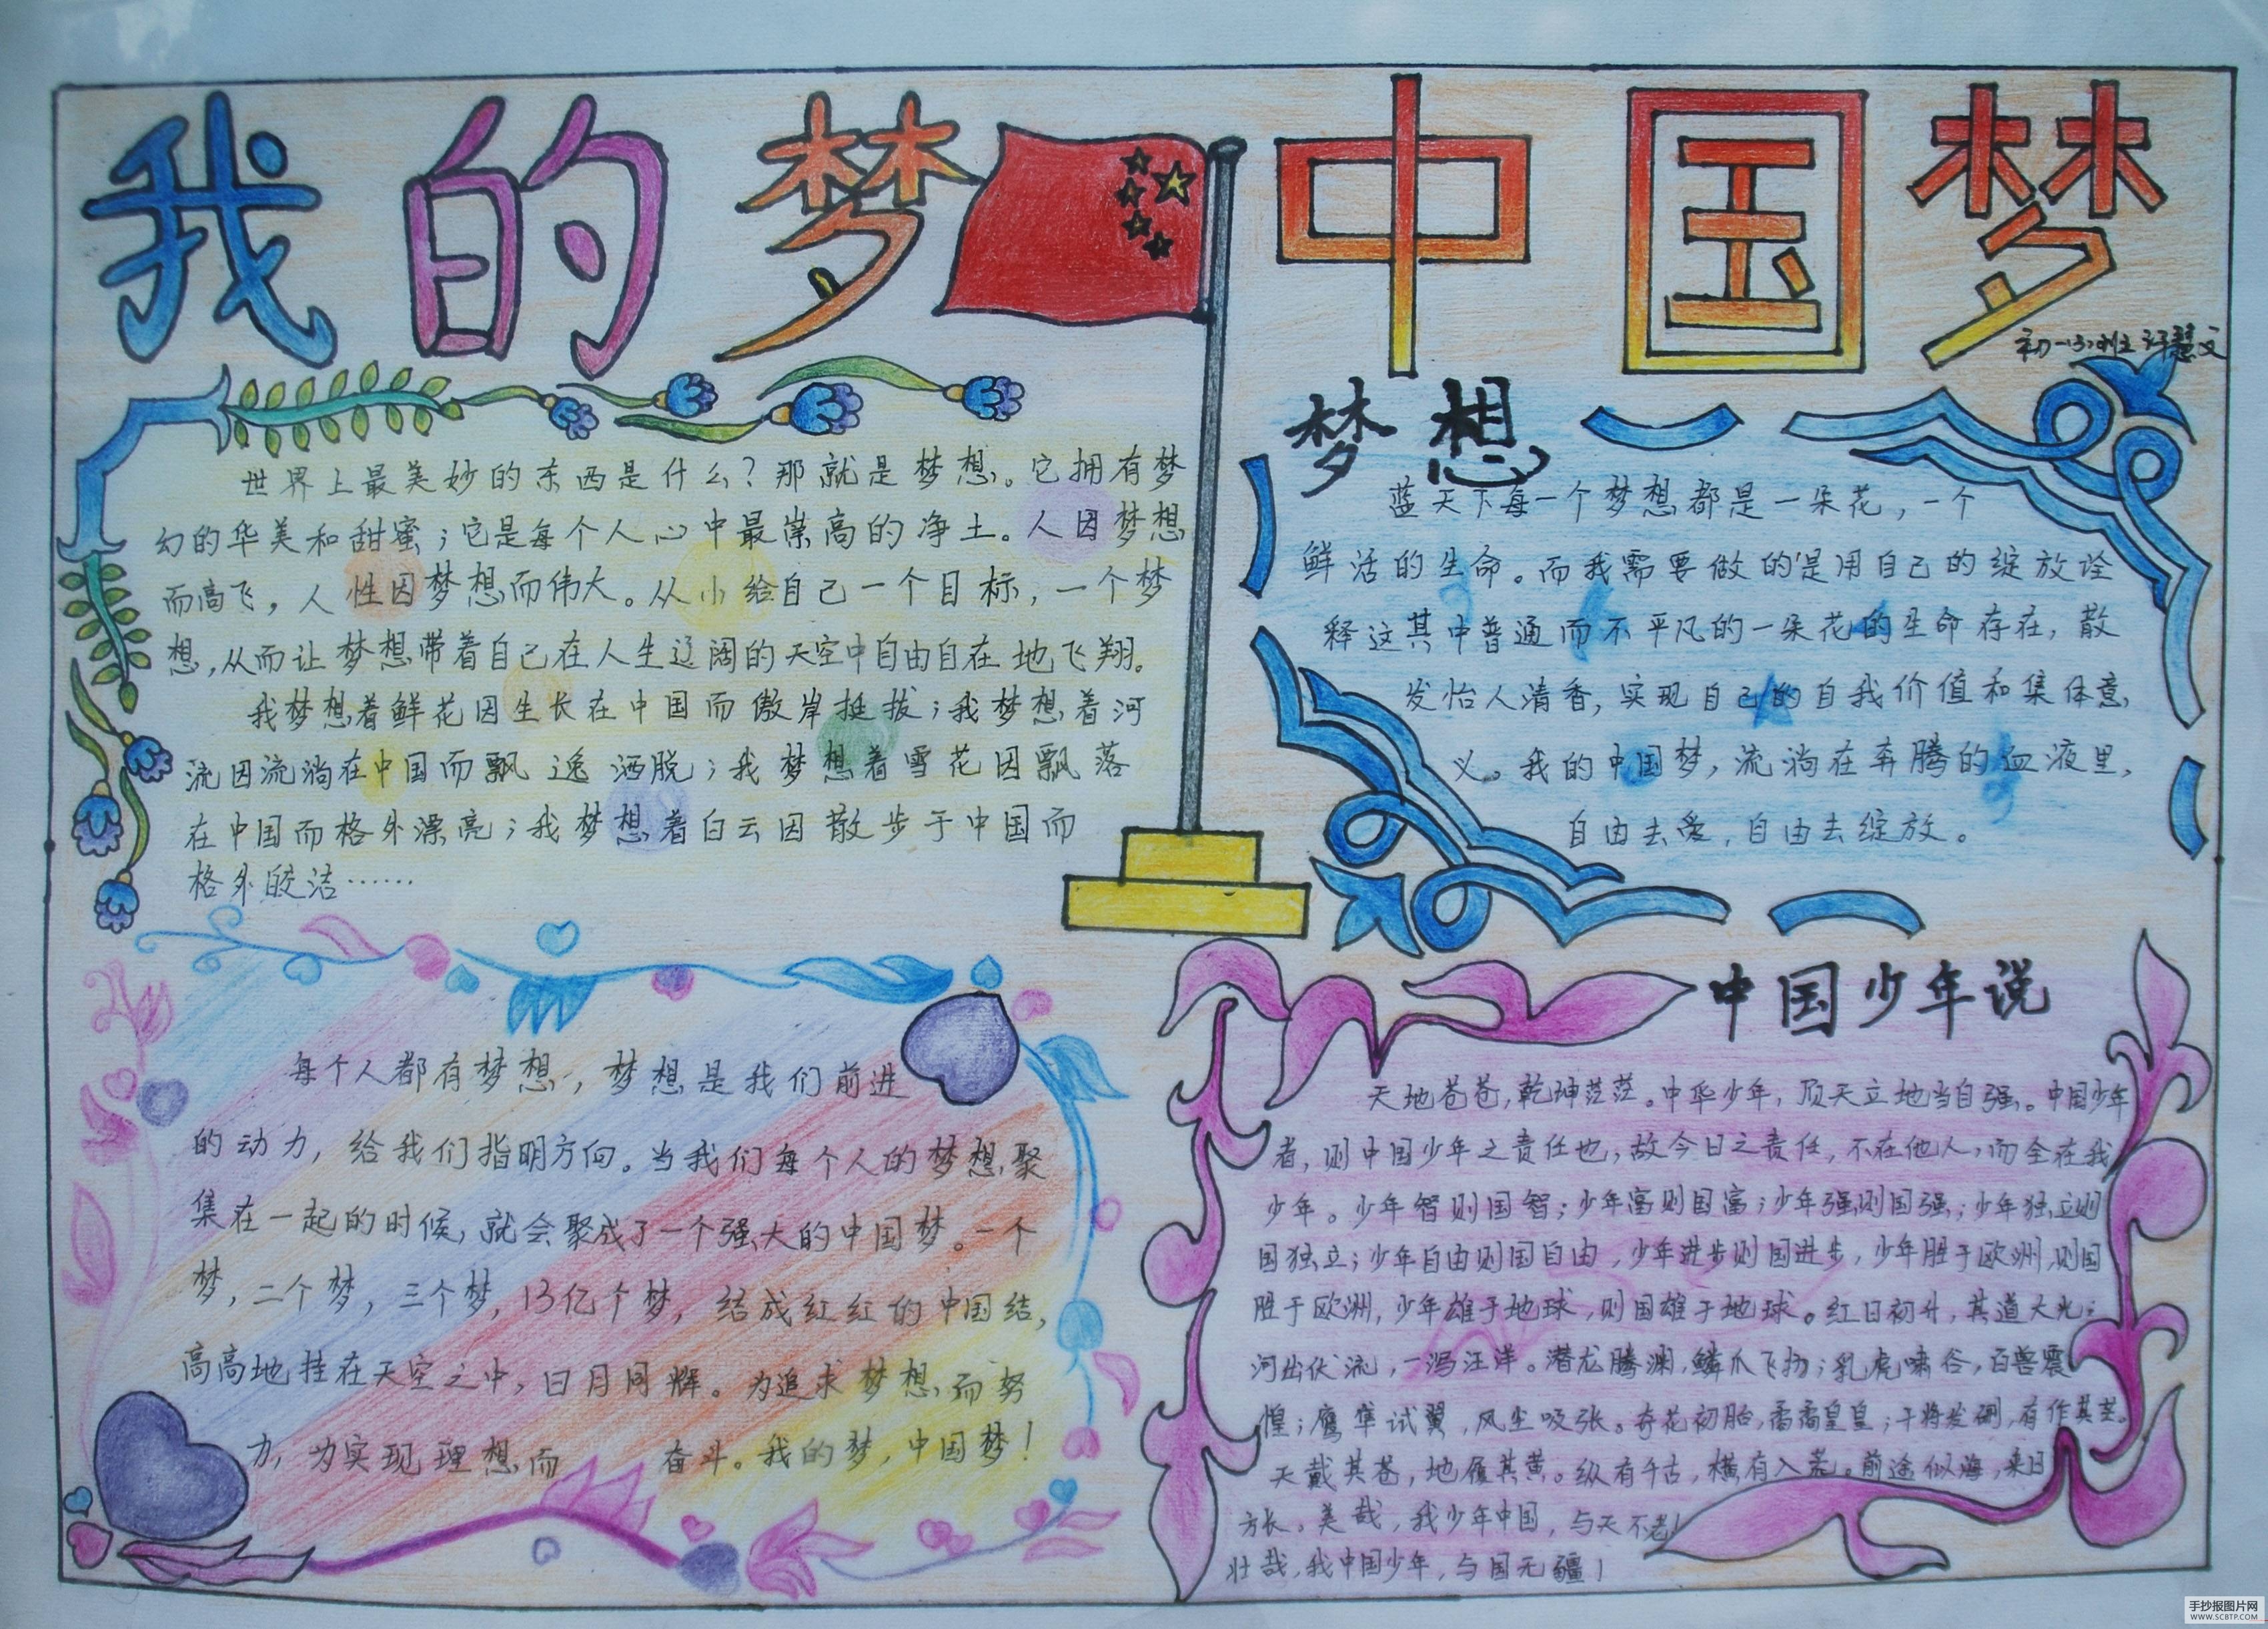 我的梦 中国梦
初一
世界上最美妙的东西是什么？那就是梦想。它拥有梦
幻的华美和甜蜜；它是每个人心中最崇高的净土。人因梦想
而高飞，人性因梦想而伟大。从小给自己一个目标，一个梦
想，从而让梦想带着自己在人生辽阔的天空中自由自在地飞翔。
我梦想着鲜花因生长在中国而傲岸挺拔；我梦想着河
流因流淌在中国而飘逸洒脱；我梦想着雪花因飘落
在中国而格外漂亮；我梦想着白云因散步于中国而
格外皎洁……
梦想
蓝天下每一个梦想都是一朵花，一个
鲜活的生命。而我需要做的是用自己的绽放诠
释这其中普通而不平凡的一朵花的生命存在，散
发怡人清香，实现自己的自我价值和集体意
义。我的中国梦，流淌在奔腾的血液里，
自由去爱，自由去绽放。
每个人都有梦想，梦想是我们前进
的动力，给我们指明方向。当我们每个人的梦想聚
集在一起的时候，就会聚成了一个强大的中国梦。一个
梦，二个梦，三个梦，13亿个梦，结成红红的中国结，
高高地挂在天空之中，日月同辉。为追求梦想而努
力，为实现理想而 奋斗。我的梦，中国梦！
中国少年说
天地苍苍，乾坤茫茫。中华少年，顶天立地当自强。中国少年
者，则中国少年之责任也；故今日之责任，不在他人，而全在我
少年。少年智则国智；少年富则国富；少年强则国强；少年独立则
国独立；少年自由则国自由，少年进步则国进步，少年胜于欧洲，则国
胜于欧洲，少年雄于地球，则国雄于地球。红日初升，其道大光；
河出伏流，一泻汪洋。潜龙腾渊，鳞爪飞扬；乳虎啸谷，百兽震
惶；鹰隼试翼，风尘吸张。奇花初胎，矞矞皇皇；干将发硎，有作其芒。
天戴其苍，地履其黄。纵有千古，横有八荒。前途似海，来日
方长。美哉，我少年中国，与天不老！
壮哉，我中国少年，与国无疆！
手抄报图片网
WWW.SCBTP.COM